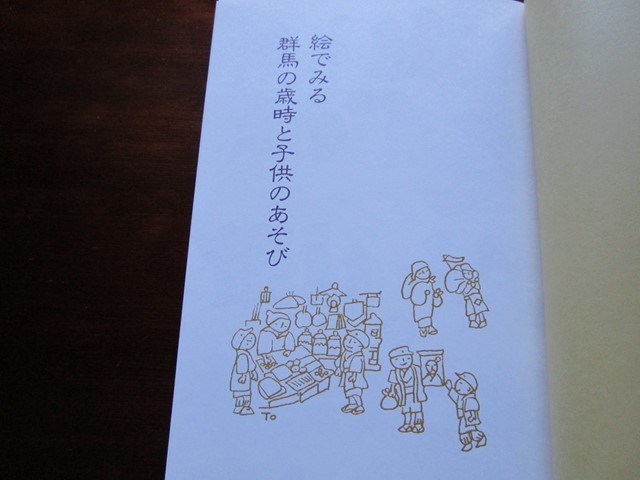 絵でみる
群馬の歳時と子供のあそび
To